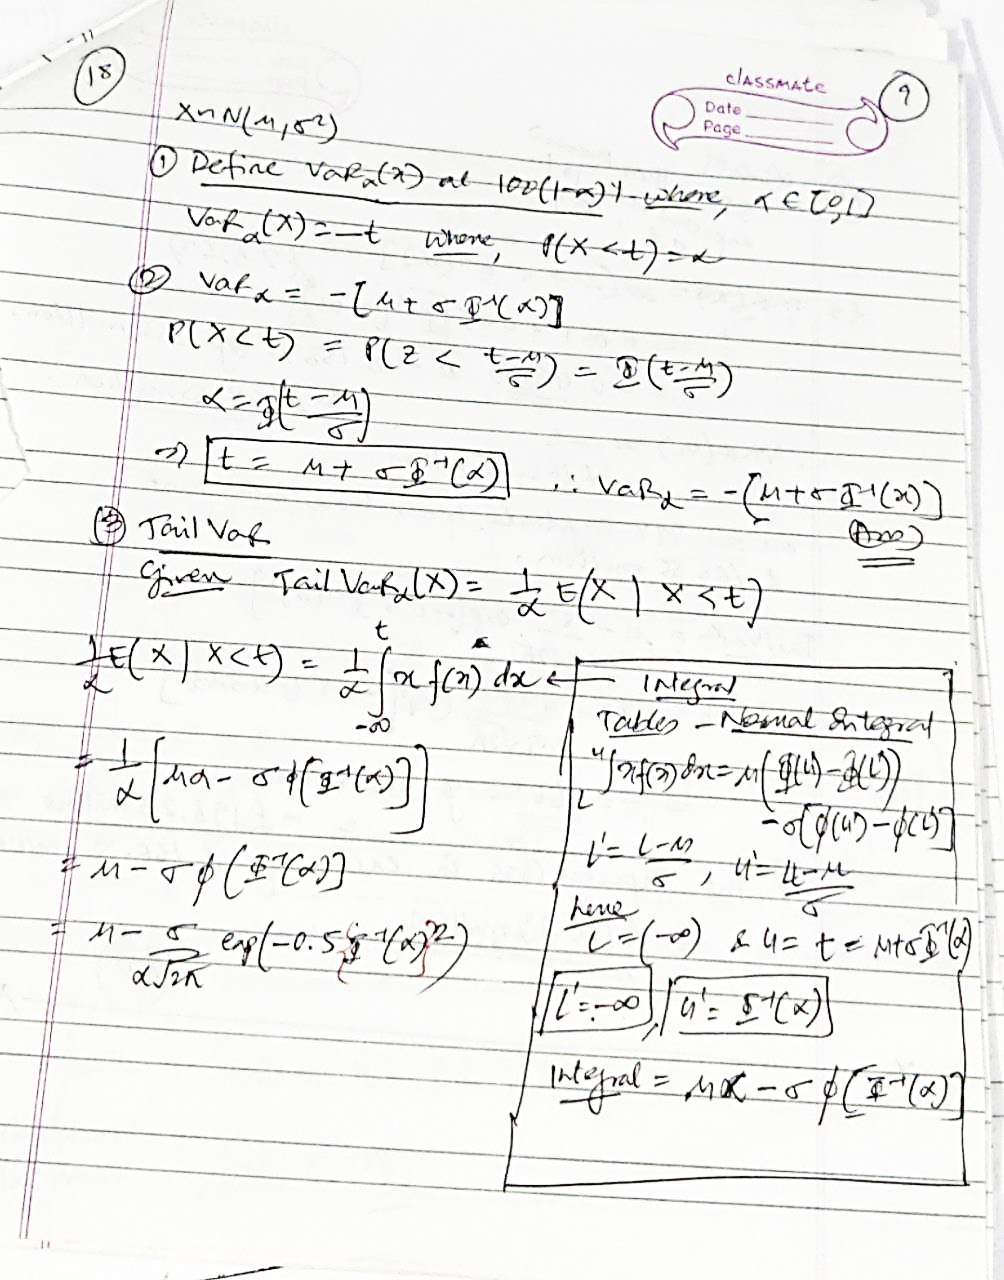 18
classmate
Date
Page
9
X~N(μ,σ²)
① Define VaRα(x) at 100(1-α)% where, α ∈ [0,1]
VaRα(X) = -t where, P(X<t)=α
② VaRα = -[μ+σΦ⁻¹(α)]
P(X<t) = P(Z < (t-μ)/σ) = Φ((t-μ)/σ)
α = Φ((t-μ)/σ)
⇒ t = μ + σΦ⁻¹(α) ∴ VaRα = -[μ+σΦ⁻¹(x)]
(Ans)
③ Tail VaR
Given Tail VaRα(X) = 1/α E(X | X<t)
1/α E(X | X<t) = 1/α ∫_{-∞}^{t} x f(x) dx ←
= 1/α [μα - σφ[Φ⁻¹(α)]]
= μ - σφ(Φ⁻¹(α)]
= μ - σ/(α√2π) exp(-0.5{Φ⁻¹(α)}²)
Integral
Tables - Normal Integral
∫_{L}^{U} x f(x) dx = μ(Φ(U') - Φ(L'))
- σ[φ(U') - φ(L')]
L' = (L-μ)/σ , U' = (U-μ)/σ
here
L = (-∞) & U = t = μ+σΦ⁻¹(α)
L' = -∞ , U' = Φ⁻¹(α)
Integral = μα - σφ[Φ⁻¹(α)]